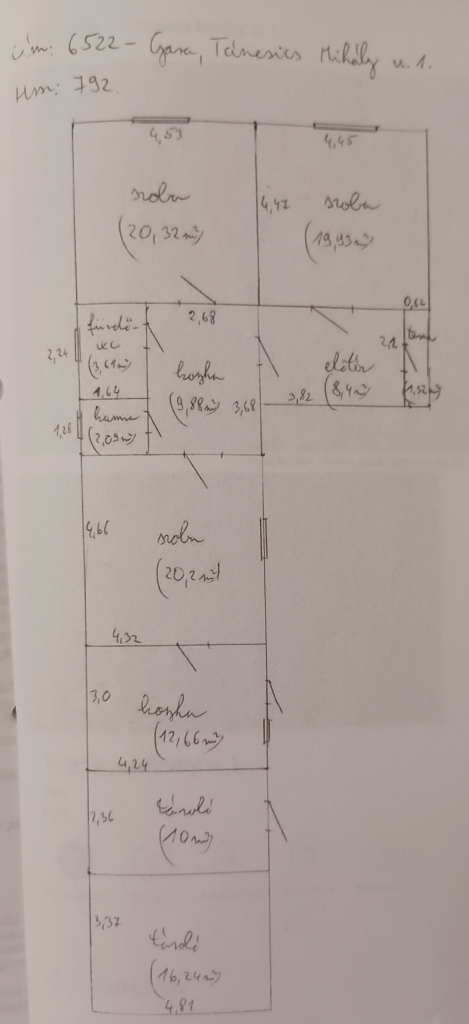 cím: 6522 - Gara, Táncsics Mihály u. 1.
Hrsz: 792.
4,53
4,45
szoba
(20,32 m²)
4,47
szoba
(19,93 m²)
2,68
0,62
fürdő-
wc
(3,61 m²)
2,24
1,64
konyha
(9,88 m²)
3,68
előtér
(8,4 m²)
3,82
terasz
(1,32 m²)
kamra
(2,09 m²)
1,28
4,66
szoba
(20,2 m²)
4,32
3,0
konyha
(12,66 m²)
4,24
2,36
tároló
(10 m²)
3,37
tároló
(16,24 m²)
4,81